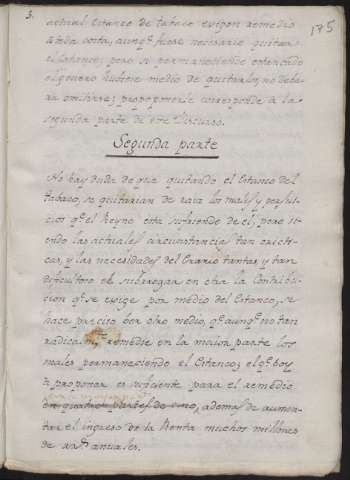 3.
175
actual Estanco de tabaco exigen remedio
a toda costa, aunq.e fuese necesario quitar
el Estanco; pero si permaneciendo estancado
el genero hubiere medio de quitarlos, no debe
omitirse; proponerle corresponde a la
segunda parte de este Discurso.
Segunda parte
No hay duda de que quitando el Estanco del
tabaco, se quitarian de raiz los males y perjui-
cios q.e el Reyno está sufriendo de él; pero si-
endo las actuales circunstancias tan criti-
cas, y las necesidades del Erario tantas, y tan
dificultoso el subrogar en otra la Contribu-
cion q.e se exige por medio del Estanco, se
hace preciso por otro medio, q.e aunq.e no tan
radical, remedie en la maior parte los
males permaneciendo el Estanco; el q.e boy
a proponer es suficiente para el remedio
en quatro partes de cinco, ademas de aumen-
tar el ingreso de la Renta muchos millones
de r.s anuales.